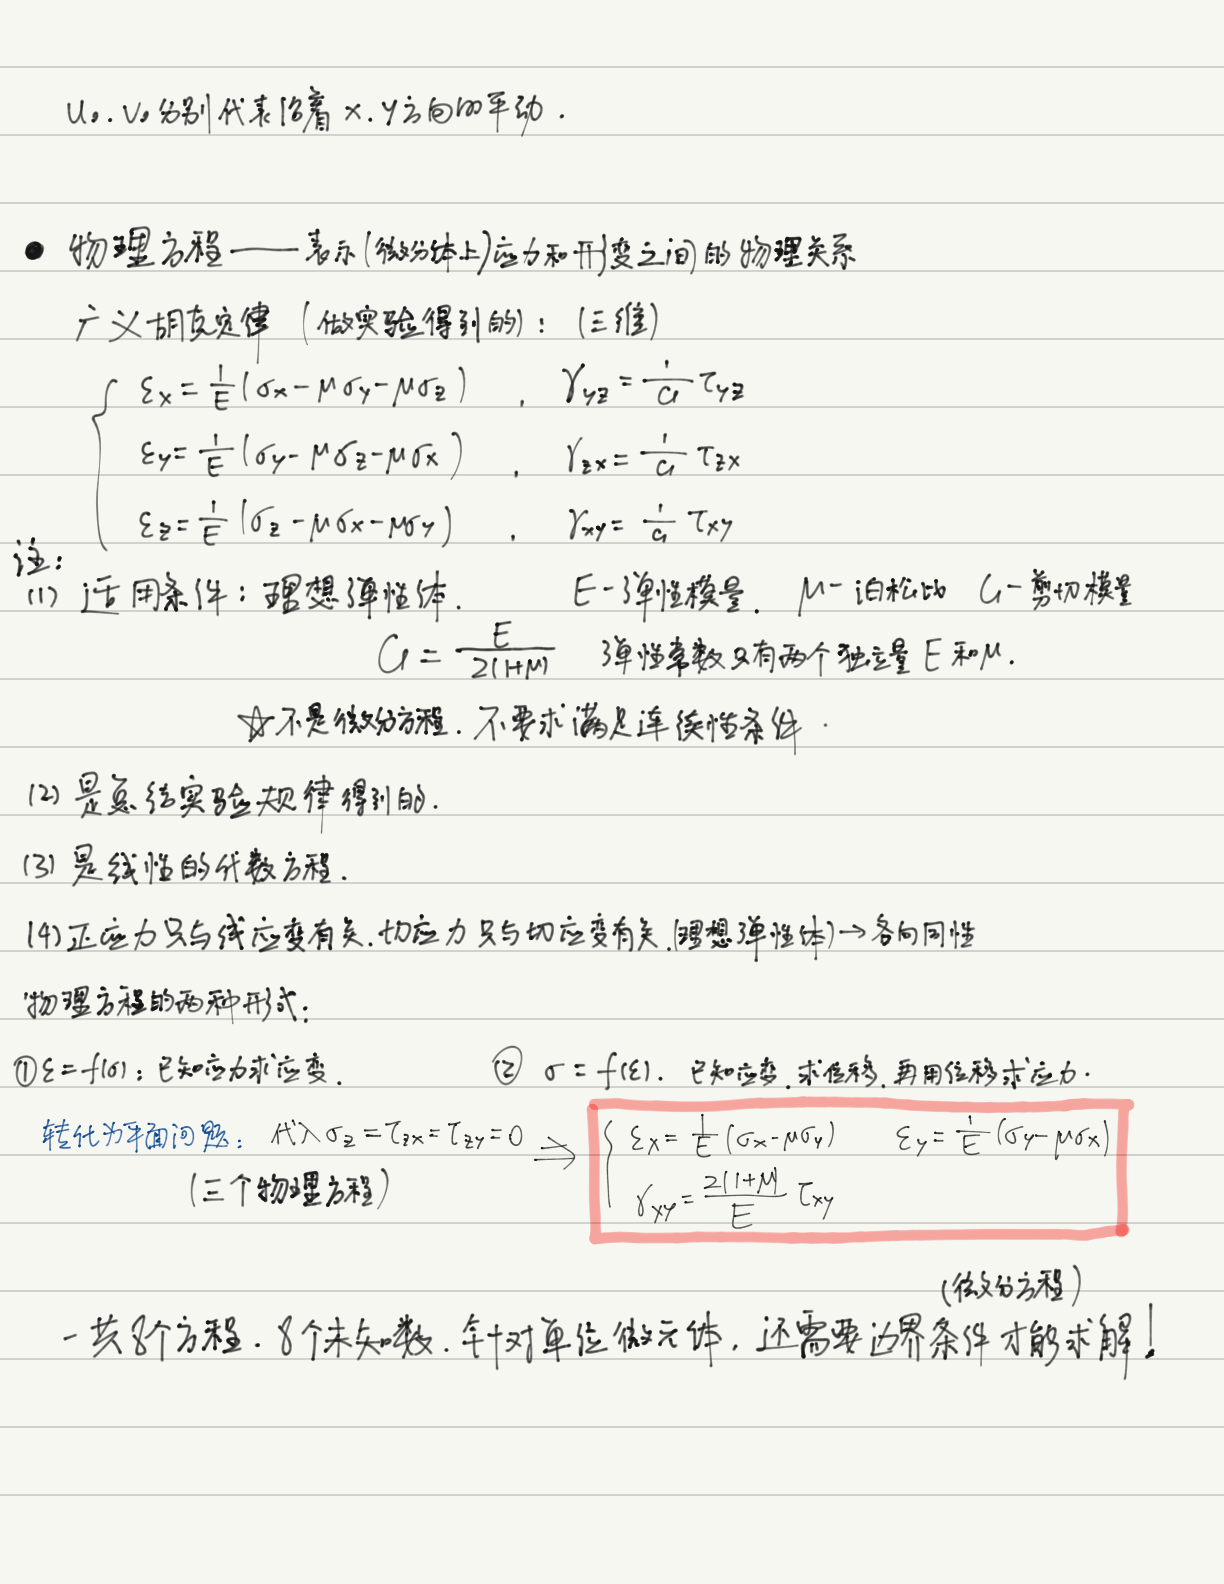 u₀.v₀分别代表沿着x.y方向的平动.
● 物理方程——表示(微分体上)应力和形变之间的物理关系
广义胡克定律 (做实验得到的): (三维)
εx=1/E(σx-μσy-μσz) , γyz=1/G τyz
εy=1/E(σy-μσz-μσx) , γzx=1/G τzx
εz=1/E(σz-μσx-μσy) , γxy=1/G τxy
注:
(1) 适用条件:理想弹性体. E-弹性模量. μ-泊松比 G-剪切模量
G=E/2(1+μ) 弹性常数只有两个独立量E和μ.
☆不是微分方程.不要求满足连续性条件.
(2) 是总结实验规律得到的.
(3) 是线性的代数方程.
(4)正应力只与线应变有关.切应力只与切应变有关.(理想弹性体)→各向同性
物理方程的两种形式:
①ε=f(σ):已知应力求应变. ② σ=f(ε). 已知应变.求位移.再用位移求应力.
转化为平面问题: 代入σz=τzx=τzy=0 ⇒ εx=1/E(σx-μσy) εy=1/E(σy-μσx)
(三个物理方程) γxy=2(1+μ)/E τxy
(微分方程)
一共8个方程.8个未知数.针对单位微元体,还需要边界条件才能求解!